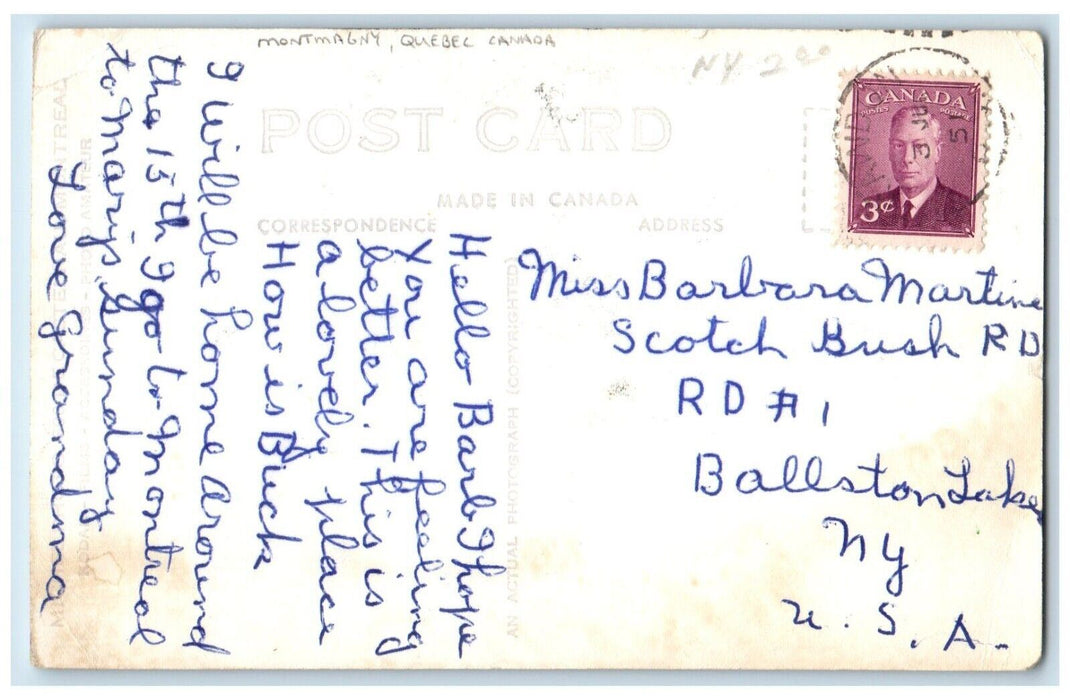 MONTMAGNY, QUEBEC CANADA
NY 2 00
POST CARD
MADE IN CANADA
CORRESPONDENCE
ADDRESS
CANADA
POSTES POSTAGE
3¢
3 JU
51
Hello Barb I hope
You are feeling
better. This is
a lovely place
How is Buck
I will be home Around
the 15th I go to Montreal
to Marys Sunday
Love Grandma
Miss Barbara Martine
Scotch Bush RD
RD #1
Ballston Lake
NY
U.S.A.
AN ACTUAL PHOTOGRAPH (COPYRIGHTED)